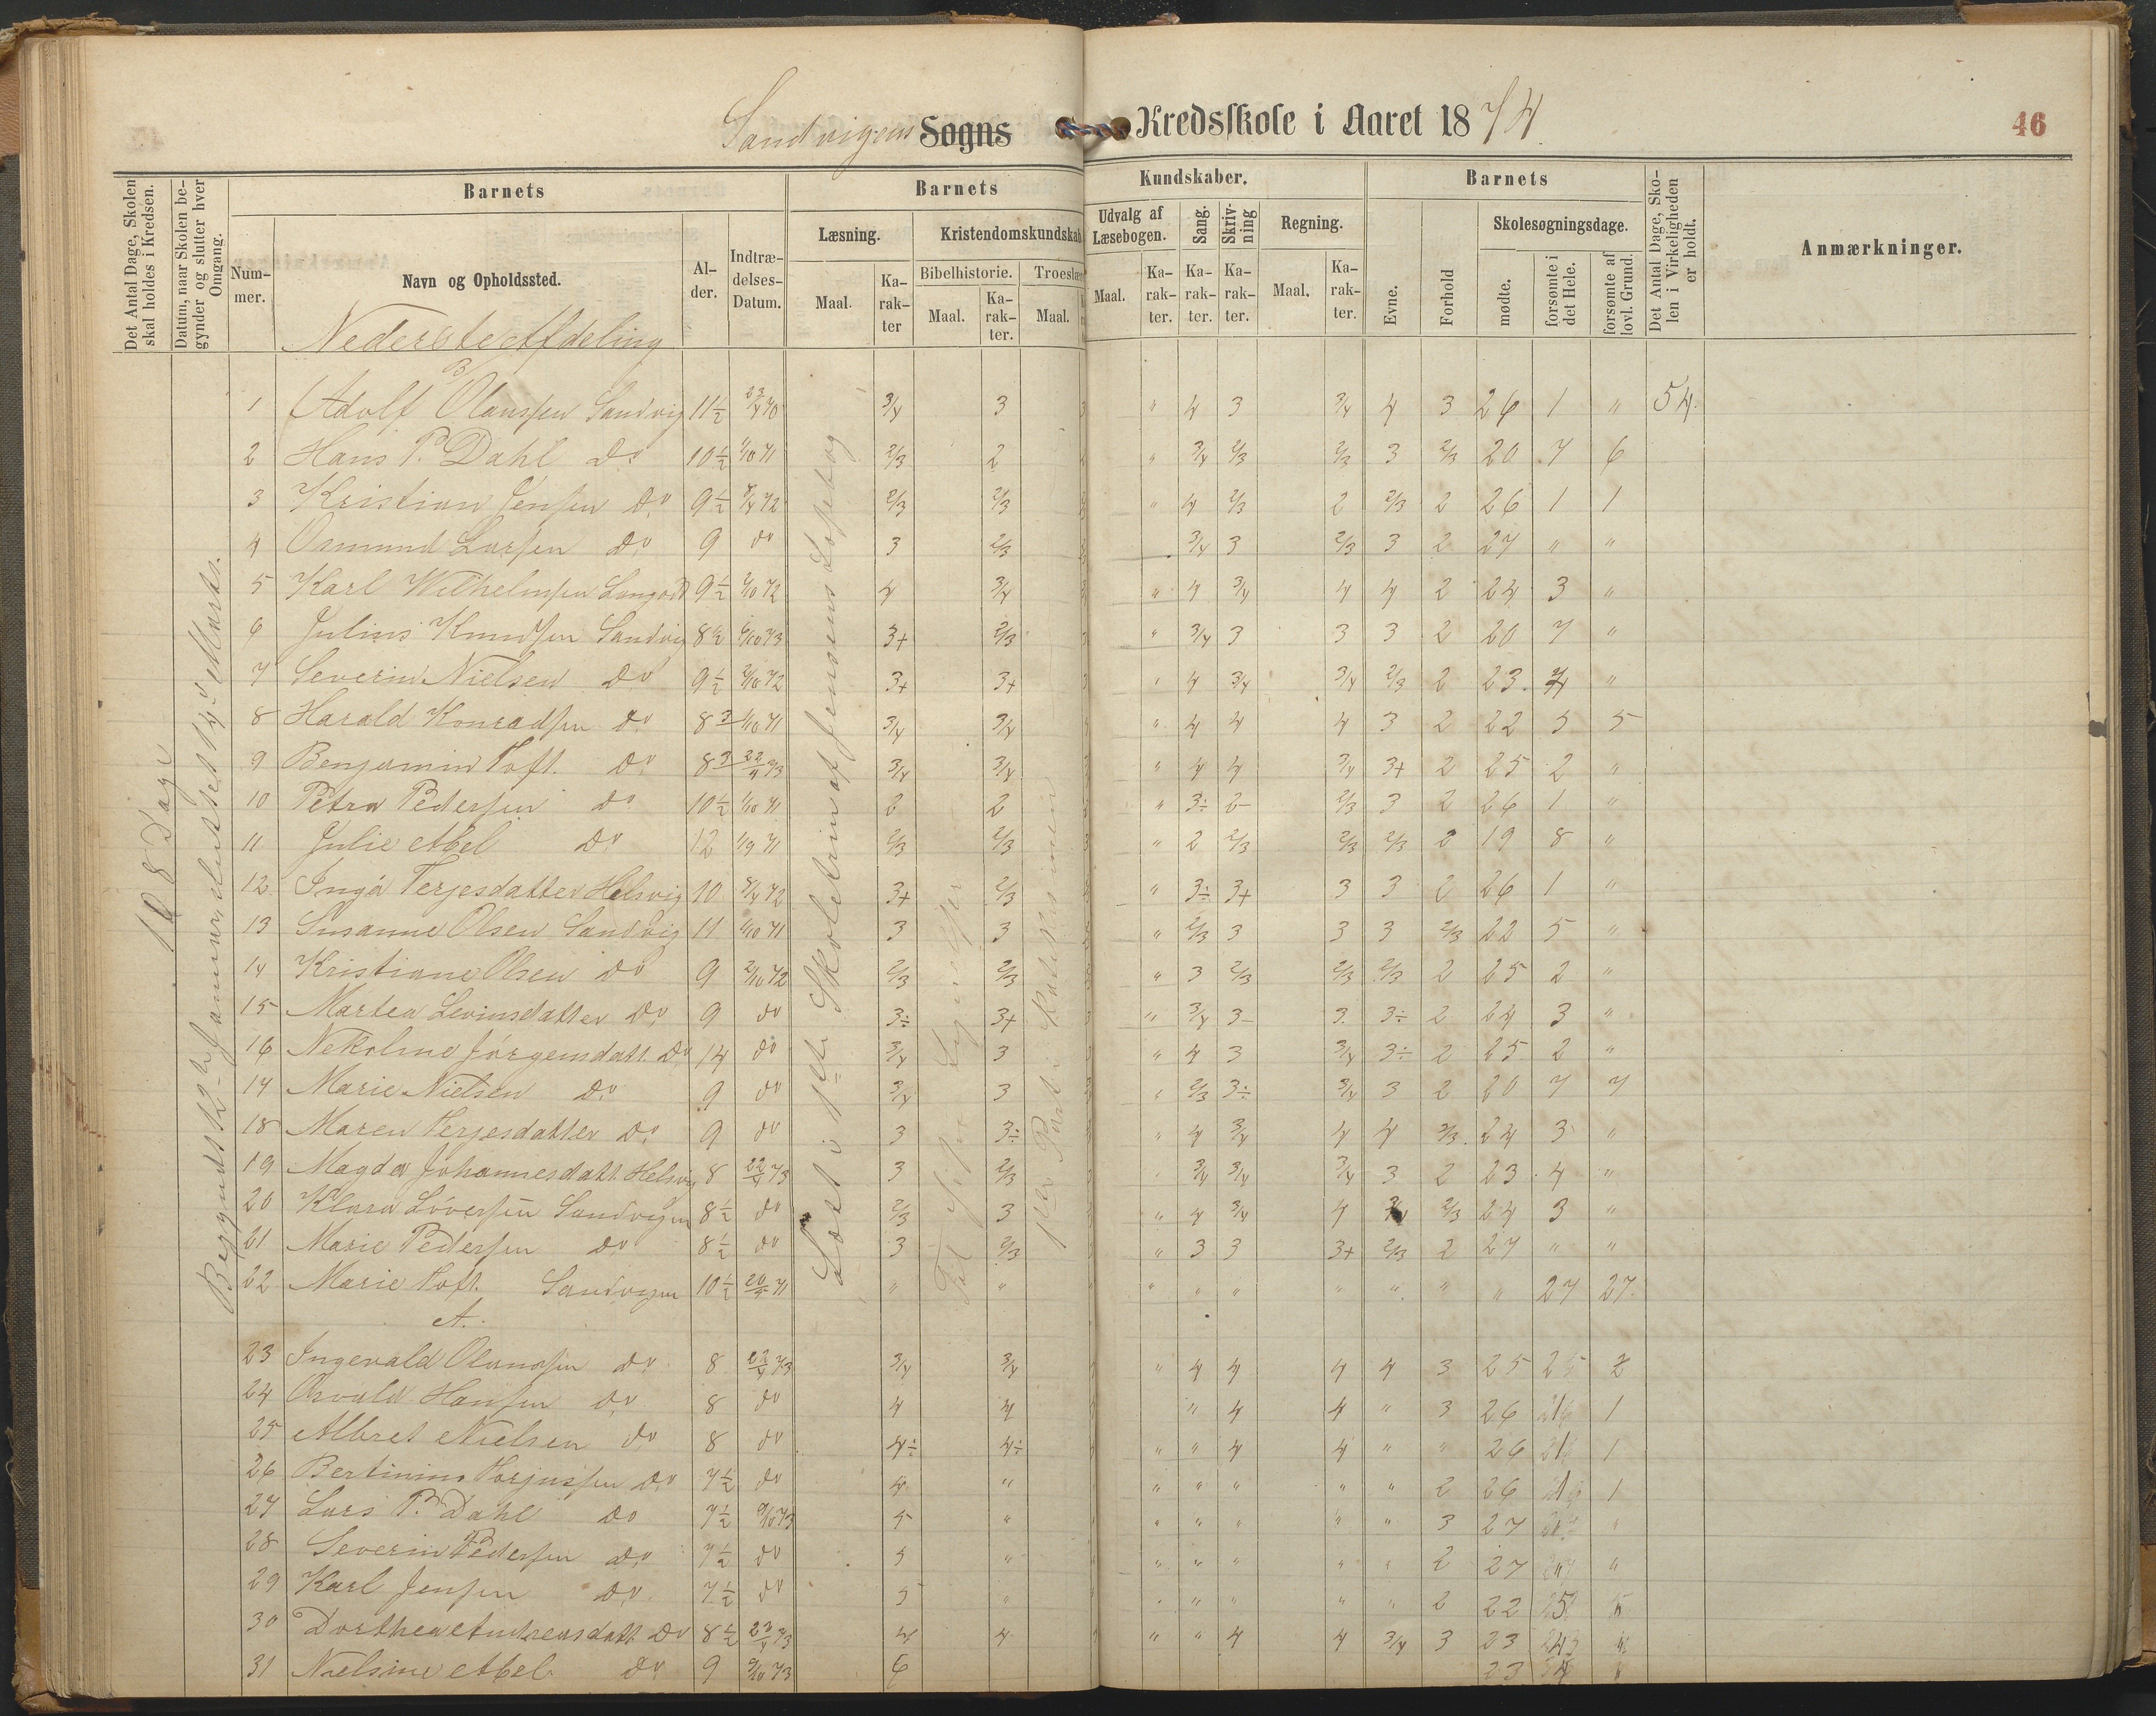 Sandvigens Sogns Kredsskole i Aaret 1874.
46
Det Antal Dage, Skolen skal holdes i Kredsen.
Datum, naar Skolen begynder og slutter hver Omgang.
Barnets
Num-mer.
Navn og Opholdssted.
Al-der.
Indtræ-delses-Datum.
Barnets Kundskaber.
Læsning.
Maal.
Ka-rak-ter
Kristendomskundskab
Bibelhistorie.
Maal.
Ka-rak-ter.
Troeslær
Maal.
Udvalg af Læsebogen.
Maal.
Ka-rak-ter.
Sang.
Ka-rak-ter.
Skriv-ning
Ka-rak-ter.
Regning.
Maal.
Ka-rak-ter.
Barnets
Evne.
Forhold
Skolesøgningsdage.
mødte.
forsømte i det Hele.
forsømte af lovl. Grund.
Det Antal Dage, Sko-len i Virkeligheden er holdt.
Anmærkninger.
108 Dage
Begyndt 12te Januar, sluttet 14de Marts.
Læst i 1ste Skoletrin af Jensens Læsebog
1ste Part. Katekismen
Nederste Afdeling
B
1 Adolf Olaussen Sandvig 11½ 23/4 70 3/4 3 3 " 4 3 3/4 4 3 26 1 " 54.
2 Hans P. Dahl do 10½ 1/10 71 2/3 2 " 3/4 2/3 2/3 3 2/3 20 7 6
3 Kristian Jensen do 9½ 8/4 72 2/3 2/3 " 4 2/3 2 2/3 2 26 1 1
4 Osmund Larsen do 9 do 3 2/3 3/4 3 2/3 3 2 27 " "
5 Karl Wilhelmsen Langod 9½ 2/10 72 4 3/4 " 4 3/4 4 4 2 24 3 "
6 Julius Knudsen Sandvig 8½ 6/10 73 3+ 2/3 3 " 3/4 3 3 3 2 20 7 "
7 Severin Nielsen do 9½ 2/10 72 3+ 3+ 3 " 4 3/4 3/4 2/3 2 23 4 "
8 Harald Konradsen do 1/10 71 3/4 3/4 " 4 4 4 3 2 22 5 5
9 Benjamin Toft. do 22/4 73 3/4 3/4 " 4 4 3/4 3+ 2 25 2 "
10 Petra Pedersen do 10½ 1/10 71 2 2 " 3÷ 2- 2/3 3 2 26 1 "
11 Julie Abel do 12 1/9 71 2/3 2/3 " 2 2/3 2/3 2/3 2 19 8 "
12 Inga Terjesdatter Helsvig 10 8/4 72 3+ 2/3 " 3÷ 3+ 3 3 2 26 1 "
13 Susanne Olsen Sandvig 11 1/10 71 3 3 " 2/3 3 3 3 2/3 22 5 "
14 Kristiane Olsen do 9 2/10 72 2/3 2/3 " 3 2/3 2/3 2/3 2 25 2 "
15 Martea Levinsdatter do 9 do 3÷ 3+ 3 " 3/4 3- 3 3÷ 2 24 3 "
16 Nekoline Jörgensdatt. do 14 do 3/4 3 3 " 4 3 3/4 3÷ 2 25 2 "
17 Marie Nielsen do 9 do 3/4 3 " 2/3 3÷ 3/4 3 2 20 7 7
18 Maren Terjesdatter do 9 do 3 3÷ " 4 3/4 4 4 2/3 24 3 "
19 Magda Johannesdatt. Helsvig 8 22/4 73 3 2/3 3/4 3/4 3/4 3 2 23 4 "
20 Klara Löversen Sandvigen 8½ do 2/3 3 " 4 3/4 4 2/3 24 3 "
21 Marie Pedersen do 8½ do 3 2/3 " 3 3 3+ 2/3 2 27 " "
22 Marie Toft. Sandvigen 10½ 71 " " " " " " " " " " 27 27.
A.
23 Ingevald Olaussen do 8 22/4 73 3/4 3/4 " 4 4 4 4 3 25 2 2
24 Osvald Hansen do 8 do 4 4 " 4 4 " 3 26 1 1
25 Albret Nielsen do 8 do 4÷ 4÷ " " 4 4 " " 26 1 1
26 Bertinius Torjussen do 7½ do 4 " " " " " " 2 26 1 1
27 Lars P. Dahl do 7½ 6/10 73 5 " " " " " " 3 27 "
28 Severin Pedersen do 7½ do 5 " " " " " " 2 27 "
29 Karl Jensen do 7½ do 5 " " " " " " 2 22 5
30 Dorthea Andreasdatt. do 8½ 22/4 73 4 4 " " 4 4 3/4 3 23 4
31 Nielsine Abel do 9 6/10 73 6 23 4